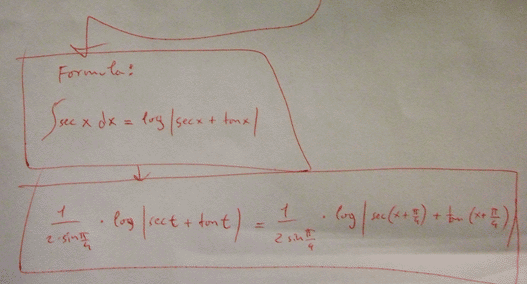 Formula:
∫sec x dx = log |secx + tanx|
1/(2·sin π/4) · log |sect + tant| = 1/(2 sin π/4) · log |sec(x+π/4) + tan(x+π/4)|